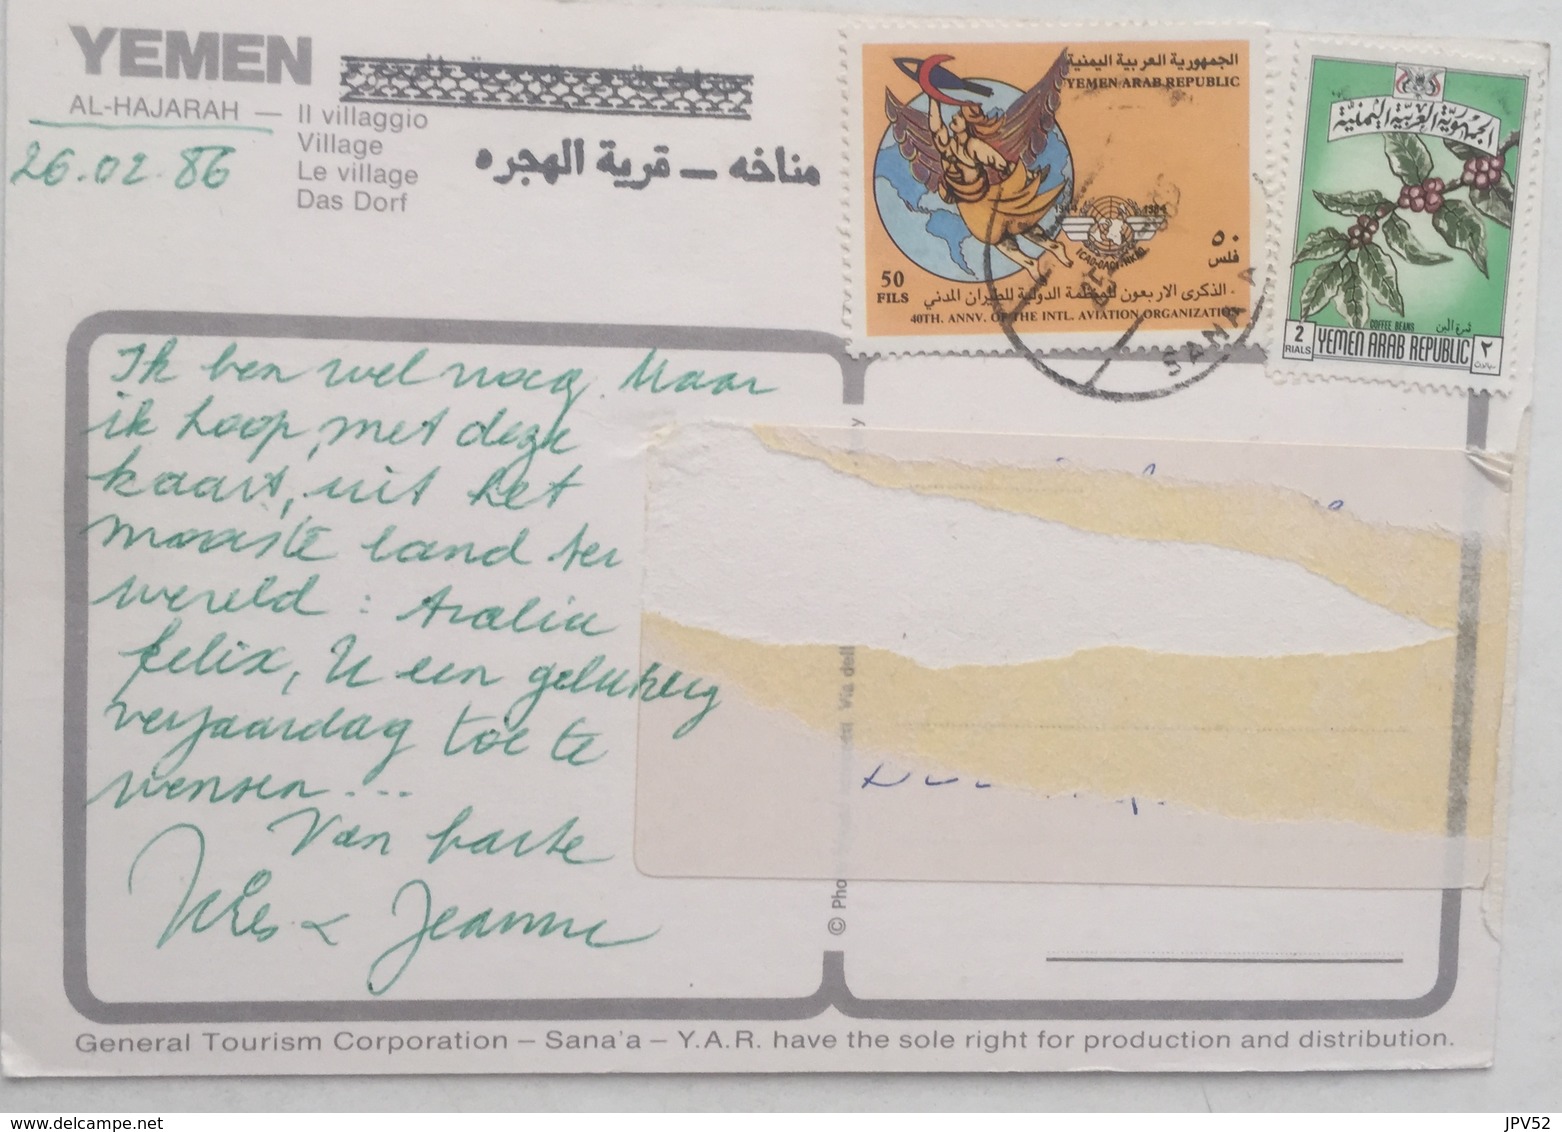 YEMEN
AL-HAJARAH — Il villaggio
Village
Le village
Das Dorf
26.02.86
مناخه — قرية الهجره
الجمهورية العربية اليمنية
YEMEN ARAB REPUBLIC
1944 1984
ICAO-OACI-ИКАО
٥٠
فلس
50
FILS
الذكرى الاربعون للمنظمة الدولية للطيران المدني
40TH. ANNV. OF THE INTL. AVIATION ORGANIZATION
SANA'A
الجمهورية العربية اليمنية
COFFEE BEANS ثمرة البن
2
RIALS
YEMEN ARAB REPUBLIC
٢
Ik ben wel nog. Maar
ik hoop, met deze
kaart, uit het
mooiste land ter
wereld : Arabia
felix, U een gelukkig
verjaardag toe te
wensen...
Van harte
& Jeanne
© Pho
Via dell
General Tourism Corporation – Sana'a – Y.A.R. have the sole right for production and distribution.
JPV52